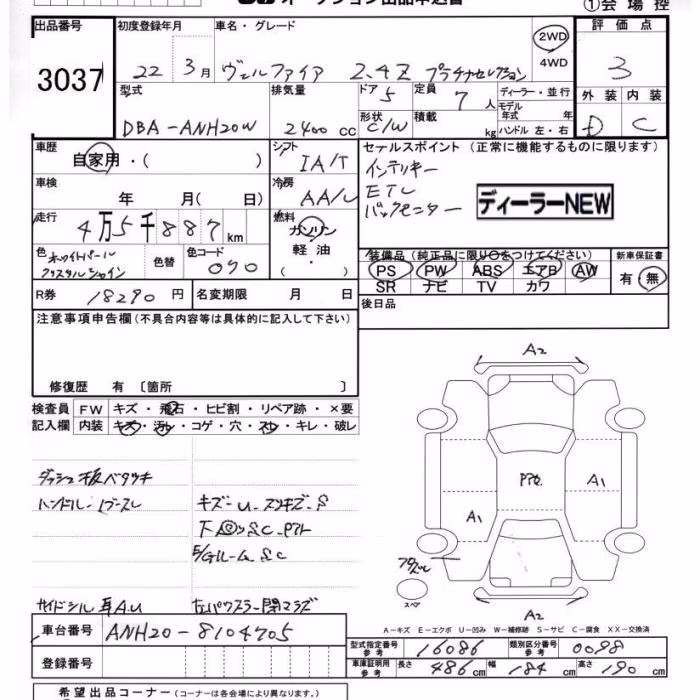 オークション出品申込書
①会場控
出品番号
3037
初度登録年月
22年 3月
車名・グレード
ヴェルファイア 2.4Z プラチナセレクション
2WD
4WD
評価点
3
型式
DBA-ANH20W
排気量
2400 cc
ドア
5
形状
C/W
定員
7人
積載
kg
ディーラー・並行
モデル年式 年
ハンドル 左・右
外装 内装
D C
車歴
自家用・( )
シフト
IA/T
車検
年 月( 日)
冷房
AA/C
走行
4万5千887km
燃料
ガソリン
軽油
・( )
色
ホワイトパール
クリスタルシャイン
色替
色コード
070
R券
18290円
名変期限 月 日
セールスポイント (正常に機能するものに限ります)
インテリキー
ETC
バックモニター
ディーラーNEW
装備品(純正品に限り○をつけてください)
PS PW ABS エアB AW
SR ナビ TV カワ
新車保証書
有 無
後日品
注意事項申告欄(不具合内容等は具体的に記入して下さい)
修復歴 有 〔箇所 〕
検査員 FW キズ・飛石・ヒビ割・リペア跡・×要
記入欄 内装 キズ・汚レ・コゲ・穴・スレ・キレ・破レ
ダッシュ板ベタツキ
ハンドル
キズ-U
サイドシル
A.U
A2
A1
A1
A2
スペア
A-キズ E-エクボ U-凹み W-補修跡 S-サビ C-腐食 XX-交換済
車台番号
ANH20-8104705
登録番号
型式指定番号
参考
16086
類別区分番号
参考
0098
車庫証明用
参考
長さ 486cm 幅 184cm 高さ 190cm
希望出品コーナー(コーナーは各会場により異なります。)